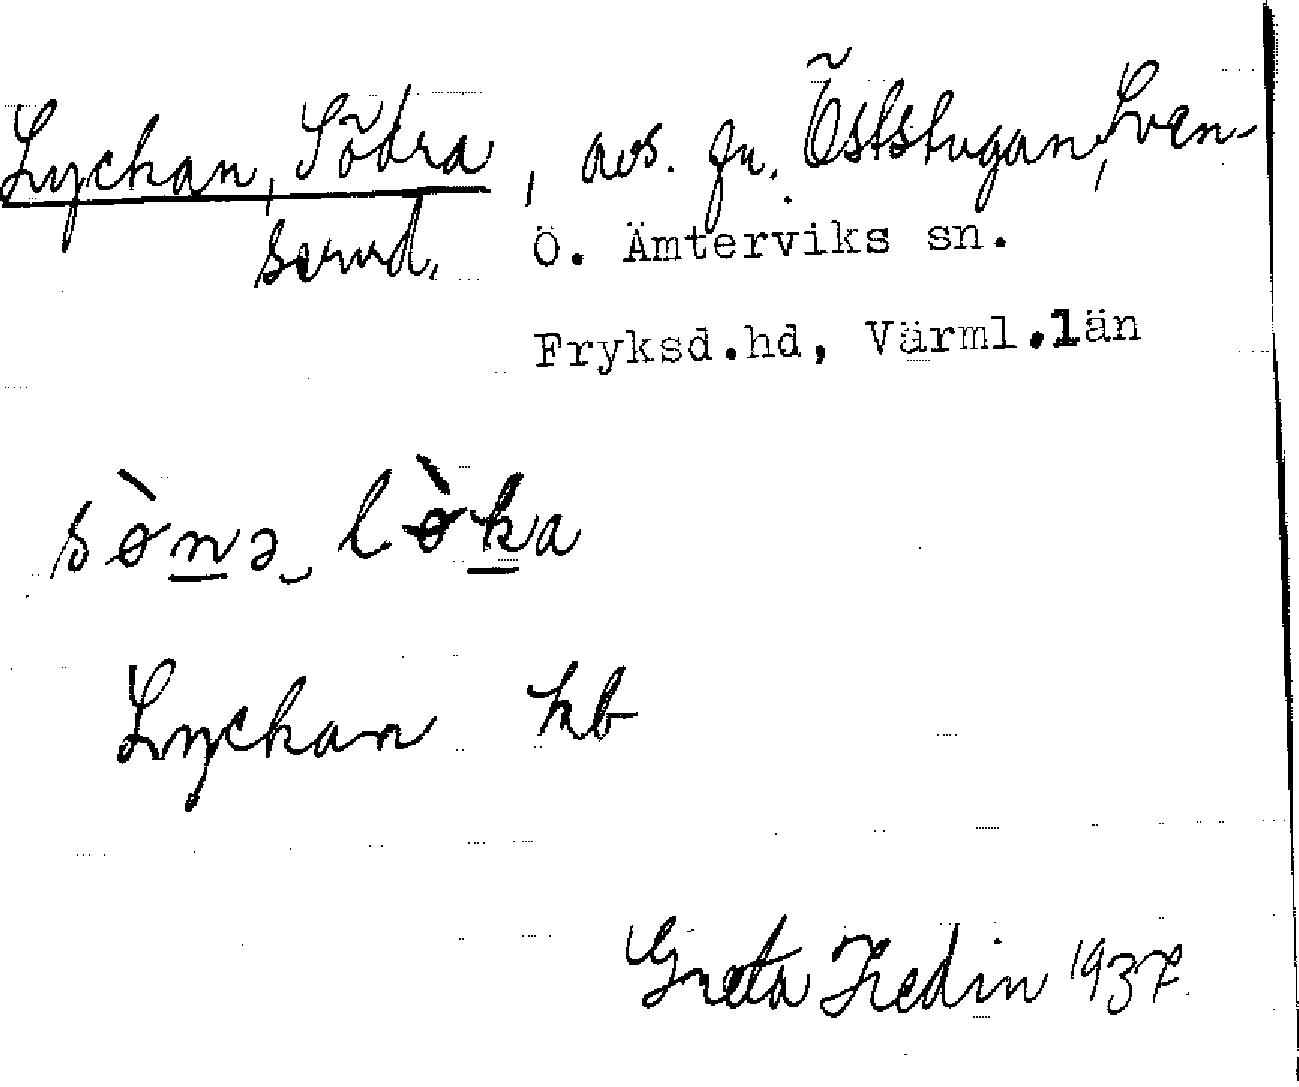 Lyckan, Södra, avs. fr. Öststugan, Sven-
serud. Ö. Ämterviks sn.
Fryksd.hd, Värml.län
sὸnə lὸka
Lyckan kb
Greta Hedin 1937.